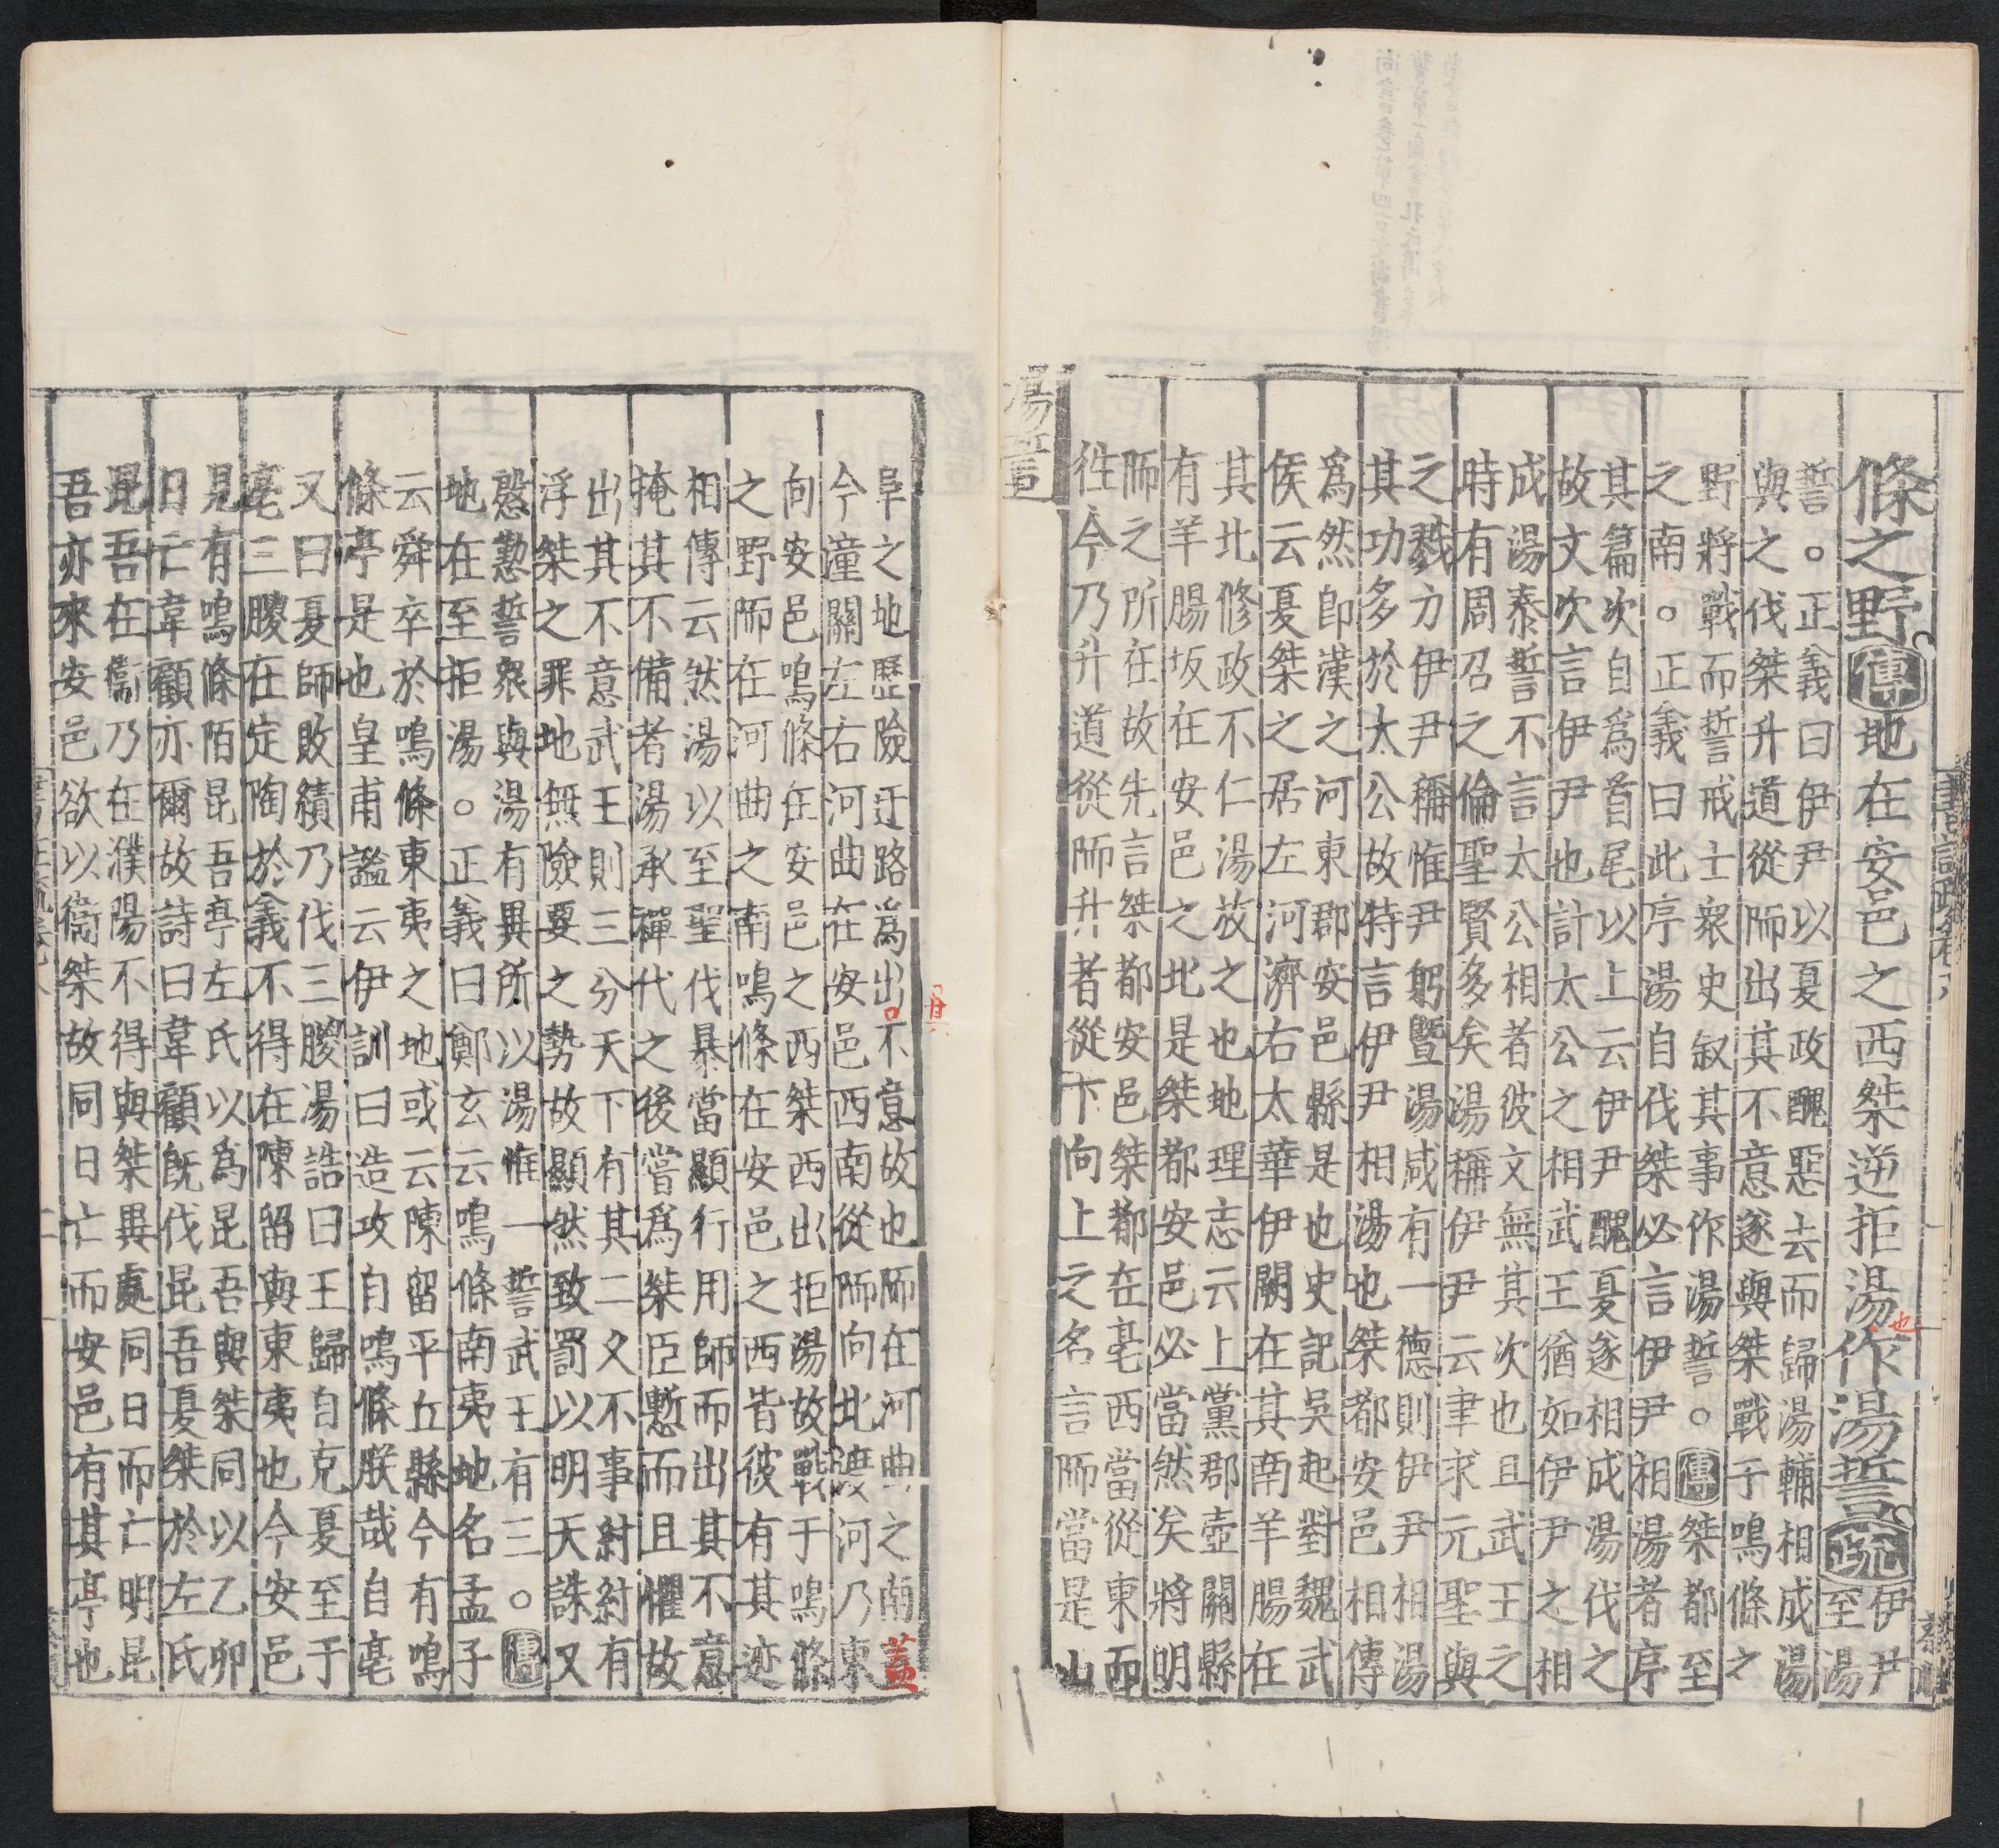 條之野。傳地在安邑之西桀逆拒湯作湯誓疏伊尹
至湯
也
誓。正義曰伊尹以夏政醜惡去而歸湯輔相成湯
與之伐桀升道從陑而出其不意遂與桀戰于鳴條之
野將戰而誓戒士衆史叙其事作湯誓。傳桀都至
之南。正義曰此序湯自伐桀必言伊尹相湯者序
其篇次自爲首尾以上云伊尹醜夏遂相成湯伐之
故文次言伊尹也計太公之相武王猶如伊尹之相
成湯泰誓不言太公相者彼文無其次也且武王之
時有周召之倫聖賢多矣湯稱伊尹云聿求元聖與
之戮力伊尹稱惟尹躬曁湯咸有一德則伊尹相湯
其功多於太公故特言伊尹相湯也桀都安邑相傳
爲然即漢之河東郡安邑縣是也史記吳起對魏武
侯云夏桀之居左河濟右太華伊闕在其南羊腸在
其北修政不仁湯放之也地理志云上黨郡壺關縣
有羊腸坂在安邑之北是桀都安邑必當然矣將明
陑之所在故先言桀都安邑桀都在亳西當從東而
徃今乃升道從陑升者從下向上之名言陑當是山
湯誓
阜之地歷險迂路爲出不意故也陑在河曲之南蓋
今潼關左右河曲在安邑西南從陑向北渡河乃東
向安邑鳴條在安邑之西桀西出拒湯故戰于鳴條
之野陑在河曲之南鳴條在安邑之西皆彼有其迹
相傳云然湯以至聖伐暴當顯行用師而出其不意
掩其不備者湯承禪代之後嘗爲桀臣慙而且懼故
出其不意武王則三分天下有其二久不事紂紂有
浮桀之罪地無險要之勢故顯然致罰以明天誅又
慇懃誓衆與湯有異所以湯惟一誓武王有三。傳
地在至拒湯。正義曰鄭玄云鳴條南夷地名孟子
云舜卒於鳴條東夷之地或云陳留平丘縣今有鳴
條亭是也皇甫謐云伊訓曰造攻自鳴條朕哉自亳
又曰夏師敗績乃伐三朡湯誥曰王歸自克夏至于
亳三朡在定陶於義不得在陳留與東夷也今安邑
見有鳴條陌昆吾亭左氏以爲昆吾與桀同以乙卯
日亡韋顧亦爾故詩曰韋顧既伐昆吾夏桀於左氏
昆吾在衞乃在濮陽不得與桀異處同日而亡明昆
吾亦來安邑欲以衞桀故同日亡而安邑有其亭也